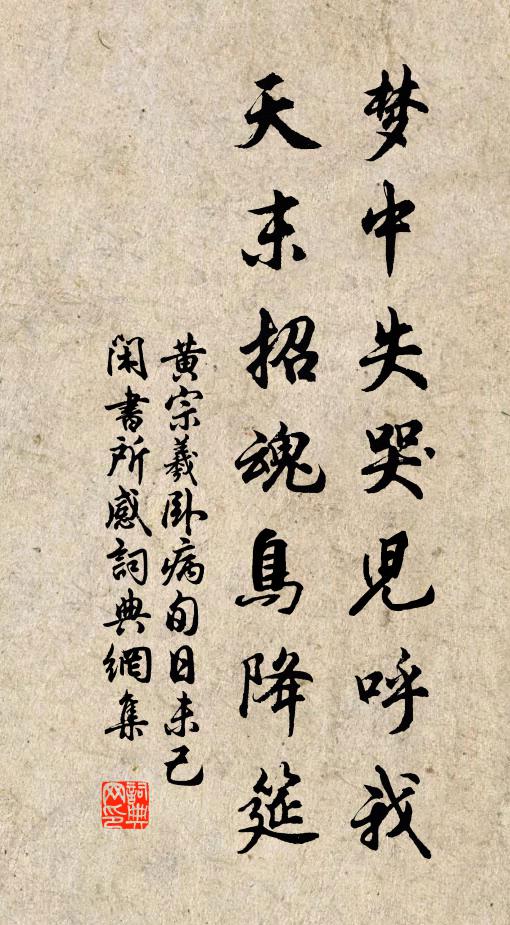 梦中失哭児呼我
天末招魂鳥降筵
黄宗羲卧病旬日未已
閑書所感詞典網集
詞典网印